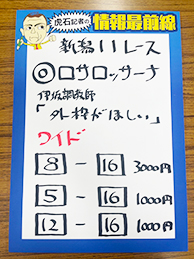 虎石記者の
情報最前線
新潟11レース
◎ロサロッサーナ
伊坂調教師
「外枠がほしい」
ワイド
8 - 16 3000円
5 - 16 1000円
12 - 16 1000円